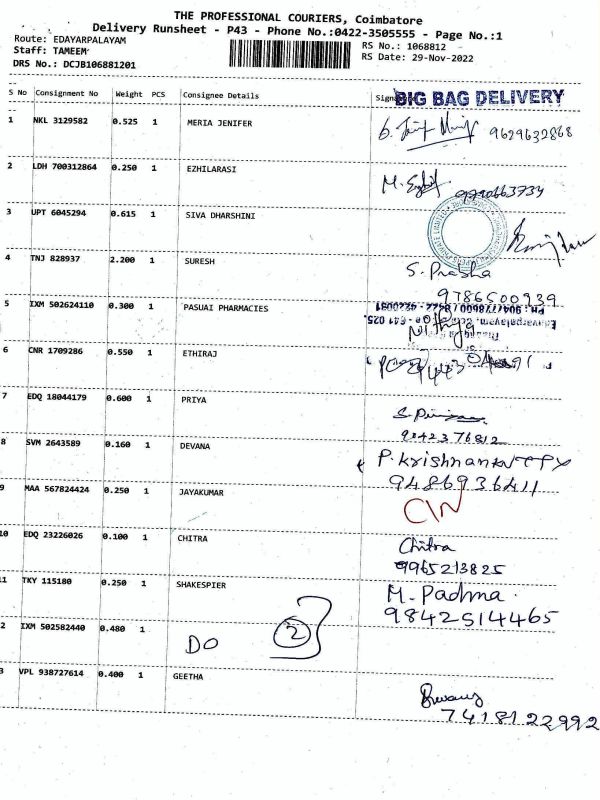 THE PROFESSIONAL COURIERS, Coimbatore
Delivery Runsheet - P43 - Phone No.:0422-3505555 - Page No.:1
Route: EDAYARPALAYAM
Staff: TAMEEM
DRS No.: DCJB106881201
RS No.: 1068812
RS Date: 29-Nov-2022
S No Consignment No Weight PCS Consignee Details
BIG BAG DELIVERY
1 NKL 3129582 0.525 1 MERIA JENIFER
9629632868
2 LDH 700312864 0.250 1 EZHILARASI
3 UPT 6045294 0.615 1 SIVA DHARSHINI
4 TNJ 828937 2.200 1 SURESH
S. Prabha
9786500939
5 IXM 502624110 0.300 1 PASUAI PHARMACIES
Nithya
6 CNR 1709286 0.550 1 ETHIRAJ
7 EDQ 18044179 0.600 1 PRIYA
9842376812
8 SVM 2643589 0.160 1 DEVANA
P. Krishnan
9486936411
9 MAA 567824424 0.250 1 JAYAKUMAR
CIN
10 EDQ 23226026 0.100 1 CHITRA
Chitra
9965213825
11 TKY 115180 0.250 1 SHAKESPIER
M. Padma.
9842514465
2 IXM 502582440 0.480 1 DO 2
3 VPL 938727614 0.400 1 GEETHA
7418122992